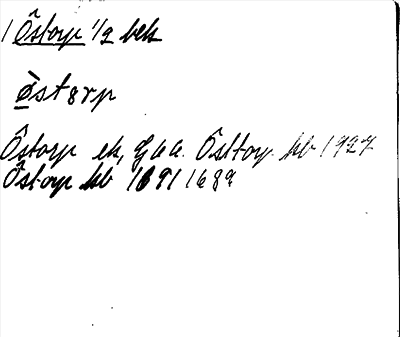 1 Östorp 1/2 bek
Östorp
Östorp ek, Östtorp kb 1927
Östorp kb 1691 1689